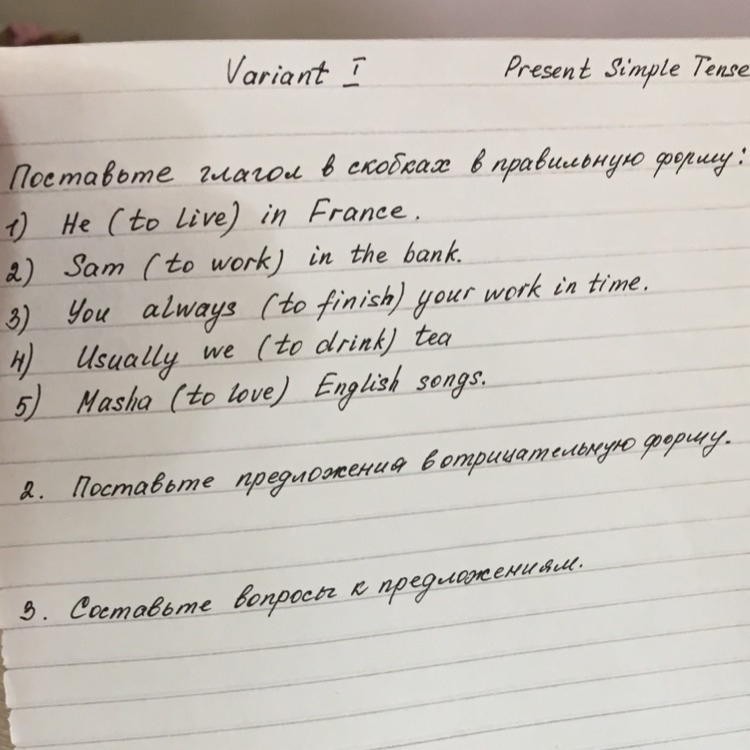 Variant I Present Simple Tense
Поставьте глагол в скобках в правильную форму:
1) He (to live) in France.
2) Sam (to work) in the bank.
3) You always (to finish) your work in time.
4) Usually we (to drink) tea
5) Masha (to love) English songs.
2. Поставьте предложения в отрицательную форму.
3. Составьте вопросы к предложениям.